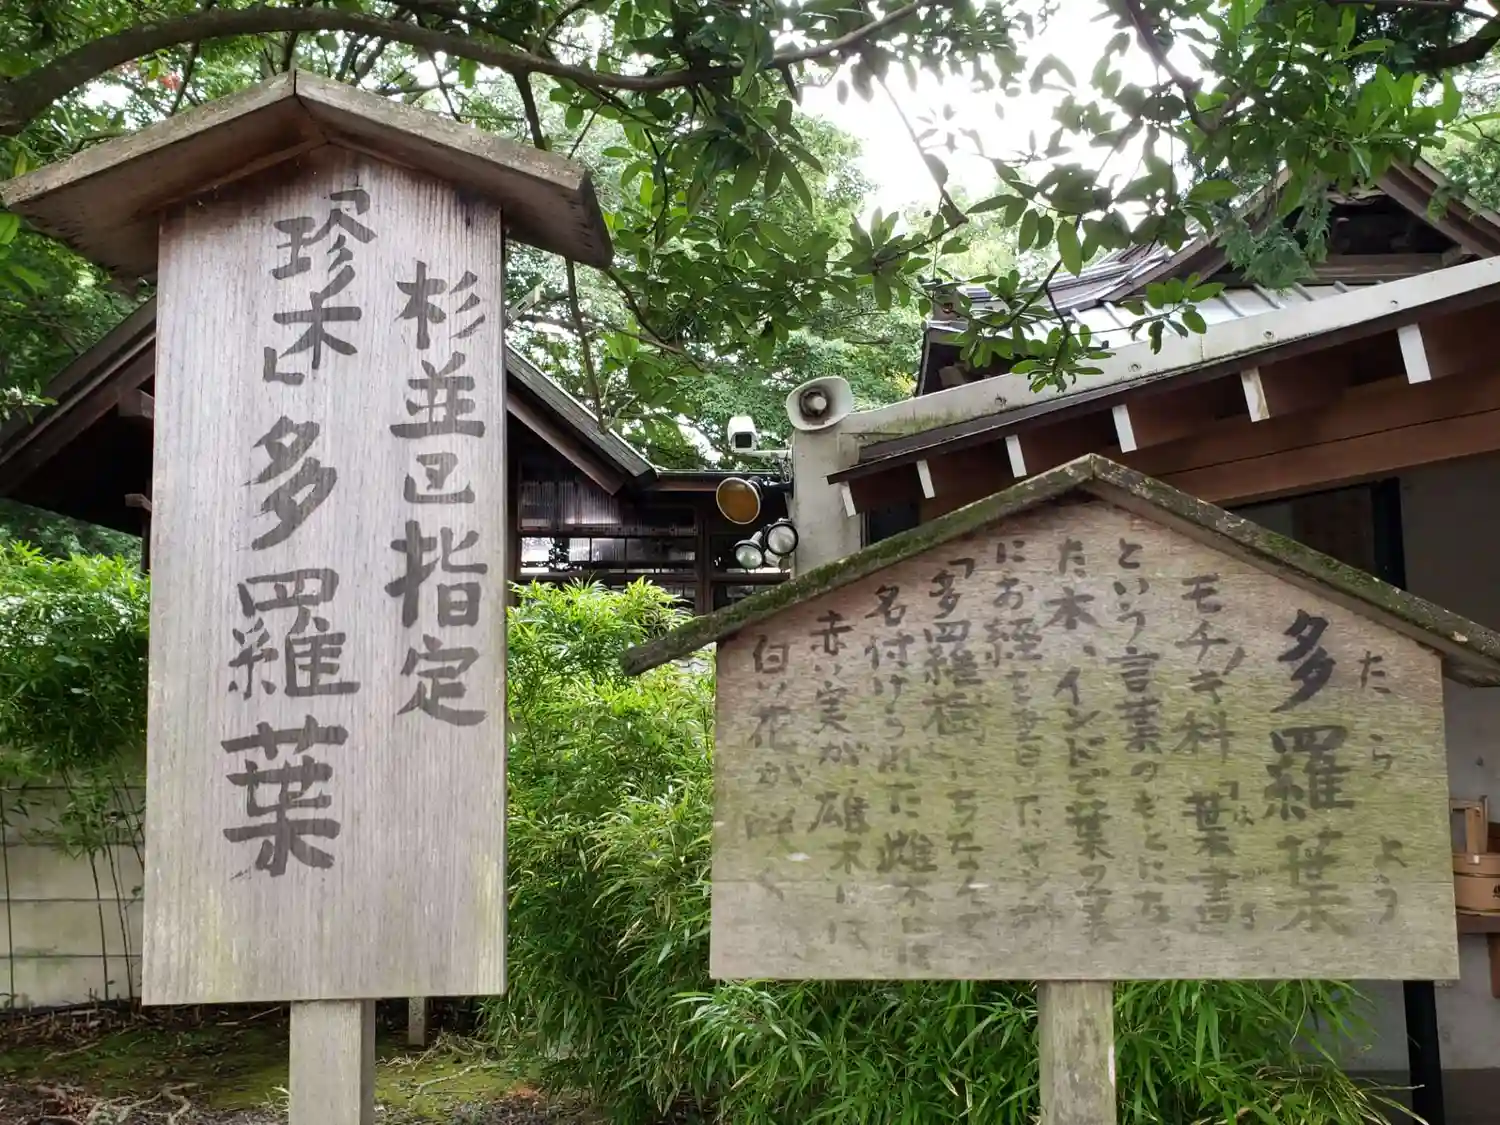 杉並区指定
「珍木」多羅葉
たらよう
多羅葉
モチノキ科「葉書
という言葉のもとにな
た木、インドで葉の裏
にお経を書いた
「多羅樹」にちなんで
名付けられた雌木には
赤い実が、雄木には
白い花が咲く